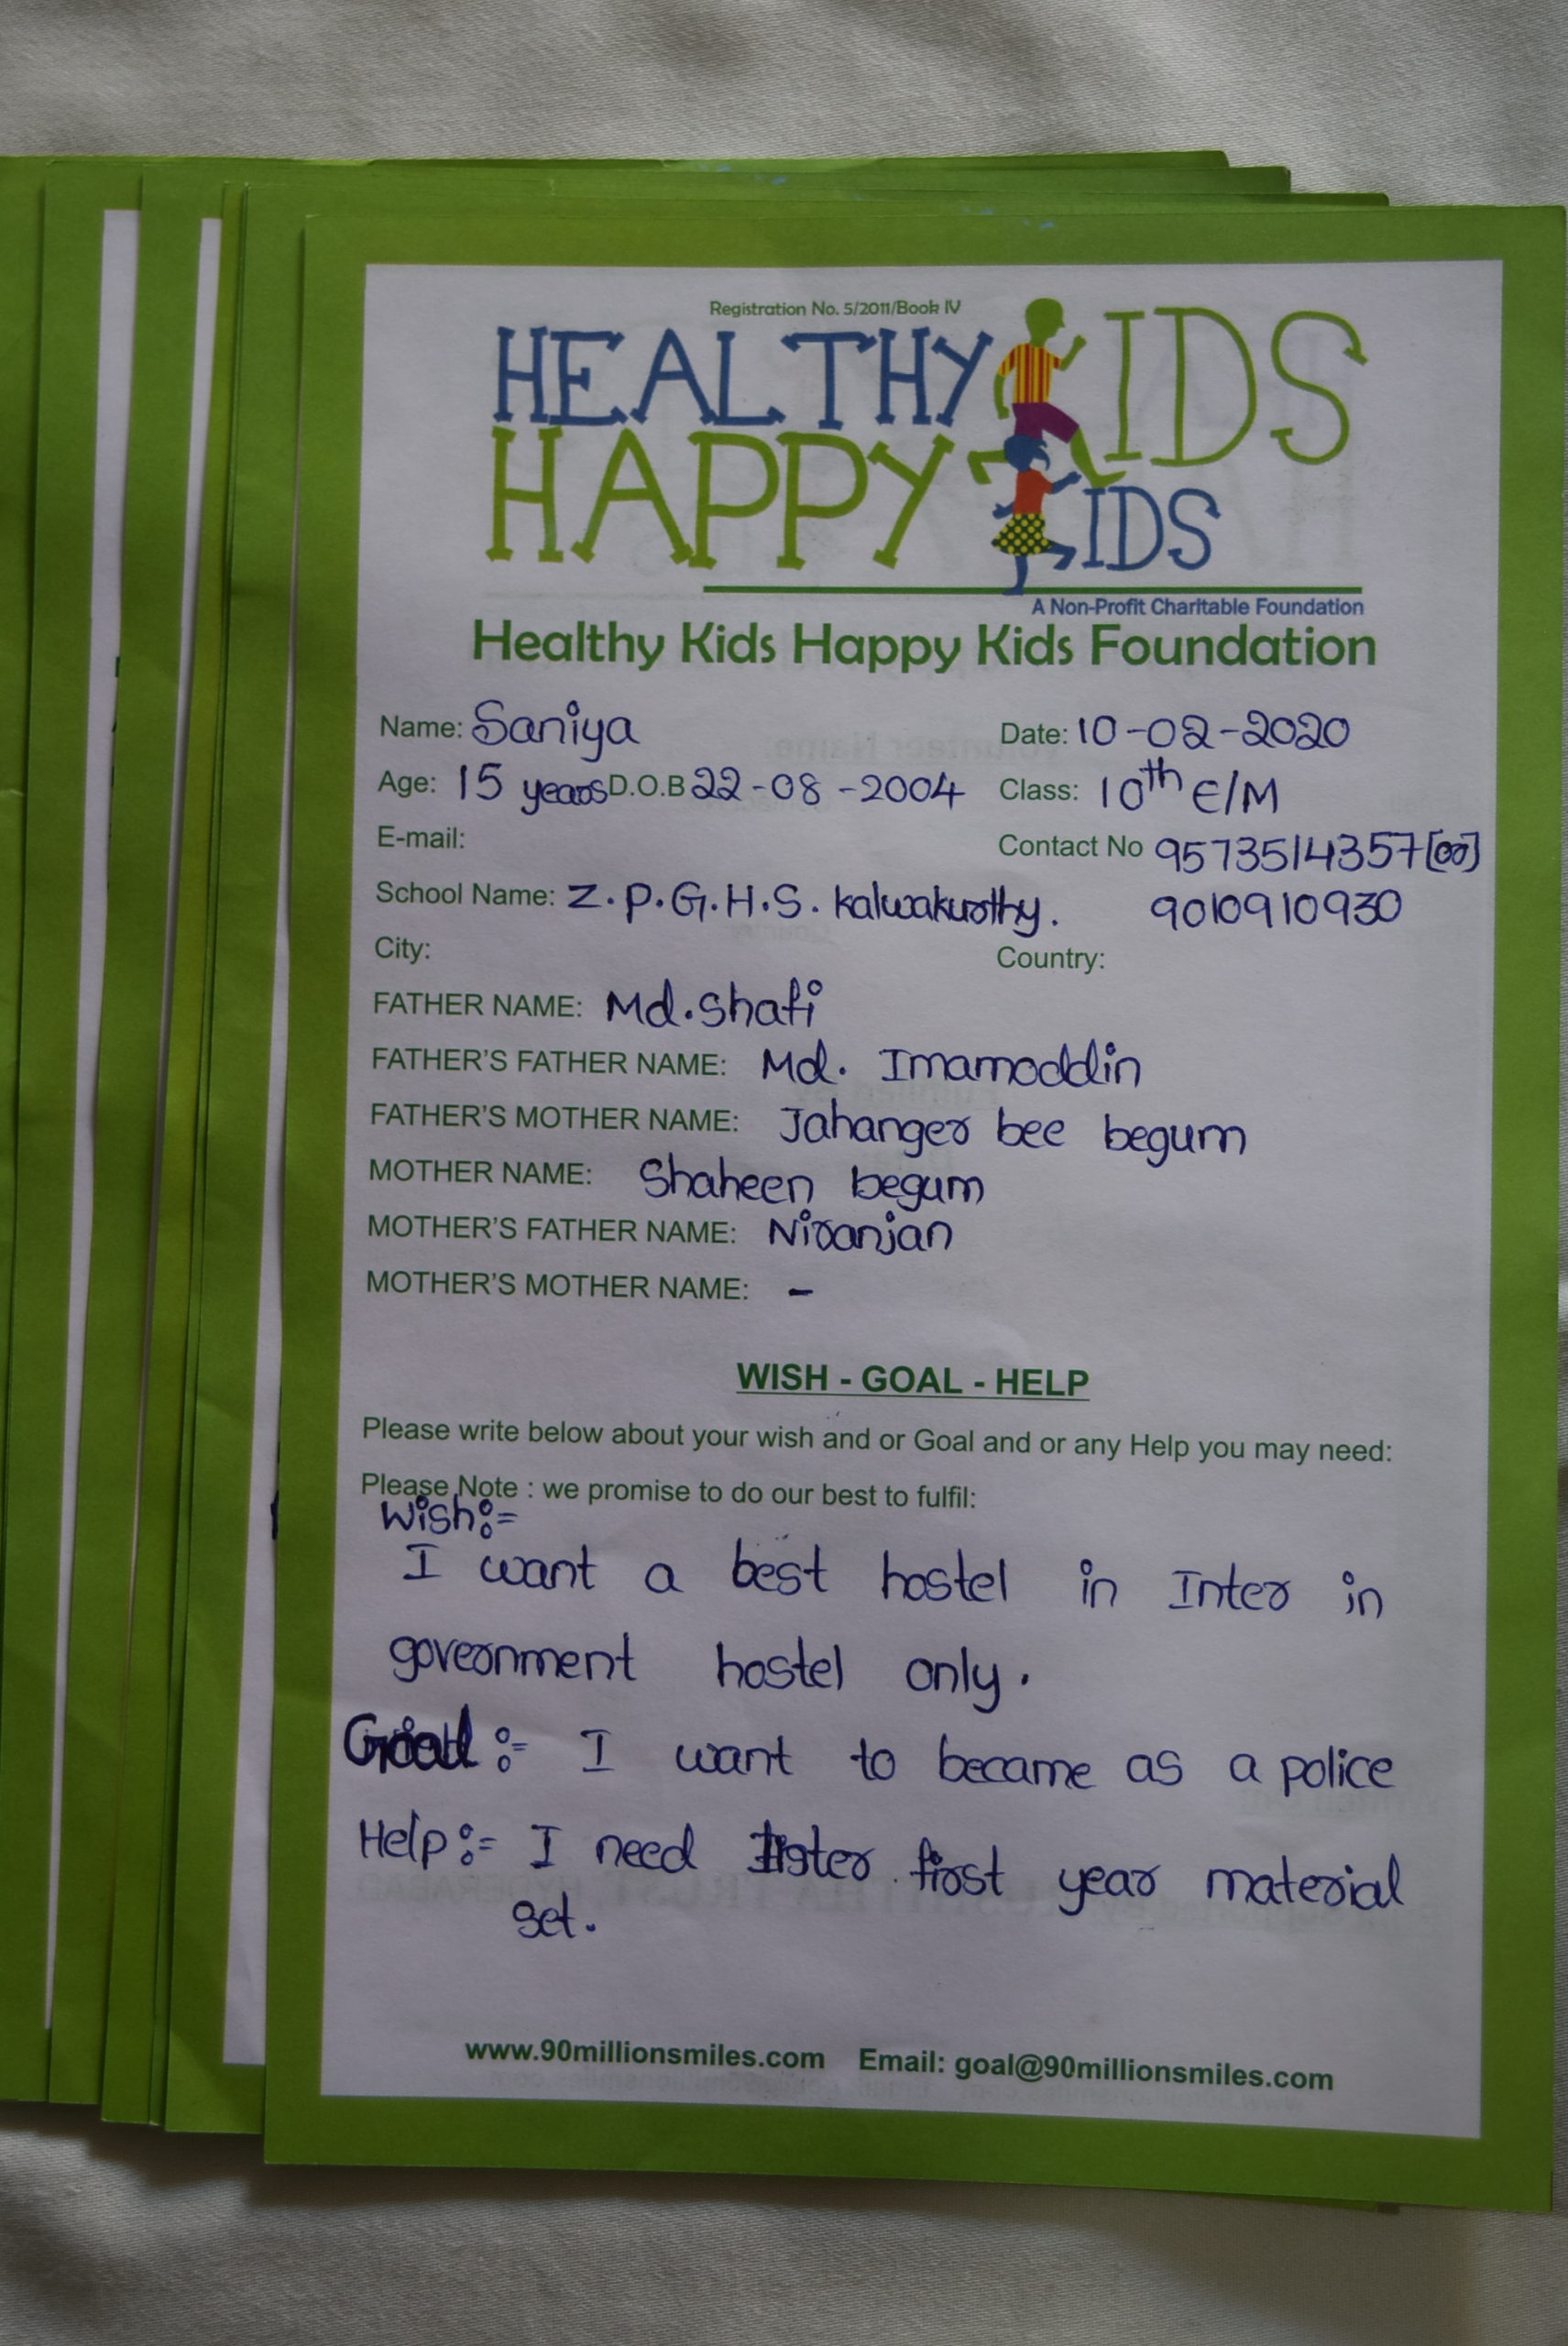 Registration No. 5/2011/Book IV
HEALTHY KIDS
HAPPY KIDS
A Non-Profit Charitable Foundation
Healthy Kids Happy Kids Foundation
Name: Saniya Date: 10-02-2020
Age: 15 years D.O.B 22-08-2004 Class: 10th E/M
E-mail: Contact No 9573514357 [or]
School Name: Z.P.G.H.S. kalwakurthy. 9010910930
City: Country:
FATHER NAME: Md.Shafi
FATHER'S FATHER NAME: Md. Imamoddin
FATHER'S MOTHER NAME: Jahanger bee begum
MOTHER NAME: Shaheen begum
MOTHER'S FATHER NAME: Niranjan
MOTHER'S MOTHER NAME: -
WISH - GOAL - HELP
Please write below about your wish and or Goal and or any Help you may need:
Please Note : we promise to do our best to fulfil:
Wish:=
I want a best hostel in Inter in
government hostel only.
Goal := I want to became as a police
Help:= I need first year material
set.
www.90millionsmiles.com Email: goal@90millionsmiles.com